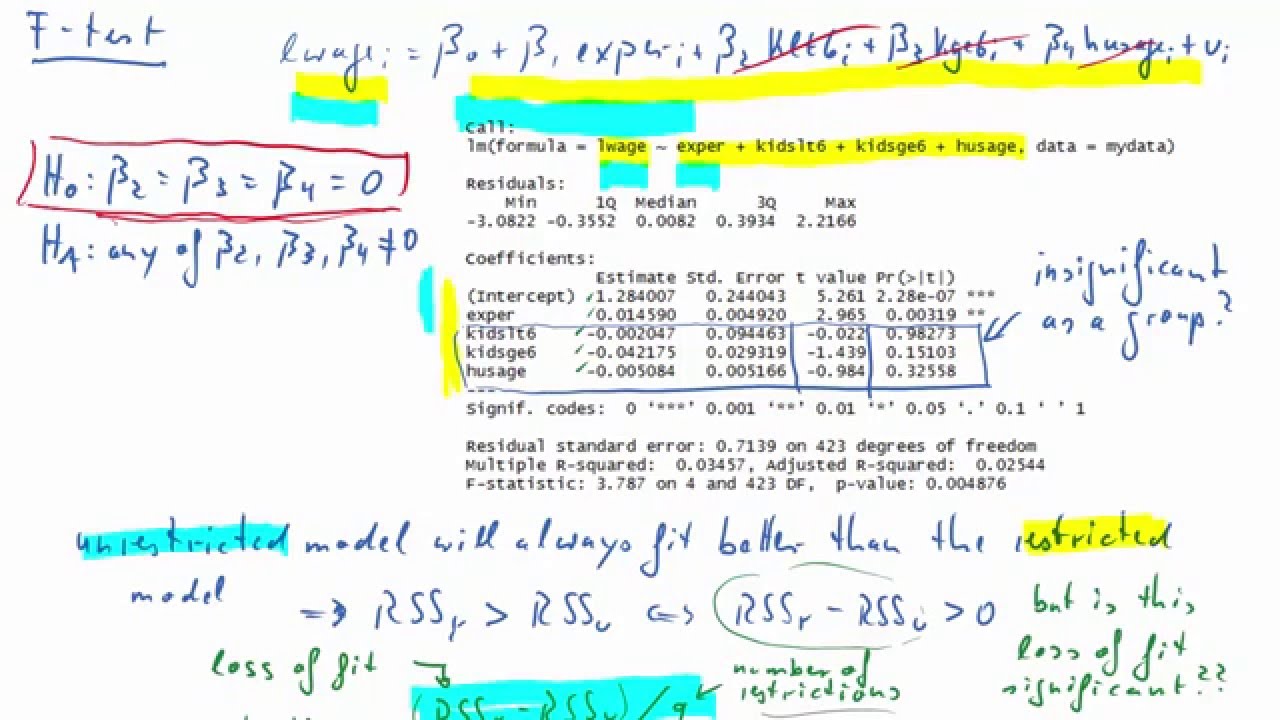 F-test
lwageᵢ = β₀ + β₁ experᵢ + β₂ klt6ᵢ + β₃ kge6ᵢ + β₄ husageᵢ + υᵢ
Call:
lm(formula = lwage ~ exper + kidslt6 + kidsge6 + husage, data = mydata)
H₀: β₂ = β₃ = β₄ = 0
Residuals:
Min 1Q Median 3Q Max
-3.0822 -0.3552 0.0082 0.3934 2.2166
H_A: any of β₂, β₃, β₄ ≠ 0
Coefficients:
Estimate Std. Error t value Pr(>|t|)
(Intercept) 1.284007 0.244043 5.261 2.28e-07 ***
exper 0.014590 0.004920 2.965 0.00319 **
kidslt6 -0.002047 0.094463 -0.022 0.98273
kidsge6 -0.042175 0.029319 -1.439 0.15103
husage -0.005084 0.005166 -0.984 0.32558
---
insignificant
as a group?
Signif. codes: 0 '***' 0.001 '**' 0.01 '*' 0.05 '.' 0.1 ' ' 1
Residual standard error: 0.7139 on 423 degrees of freedom
Multiple R-squared: 0.03457, Adjusted R-squared: 0.02544
F-statistic: 3.787 on 4 and 423 DF, p-value: 0.004876
unrestricted model will always fit better than the restricted
model
⇒ RSSᵣ > RSSᵤ ⇔ RSSᵣ - RSSᵤ > 0
but is this
loss of fit
significant??
loss of fit
number of
restrictions
(RSSᵣ - RSSᵤ) / q